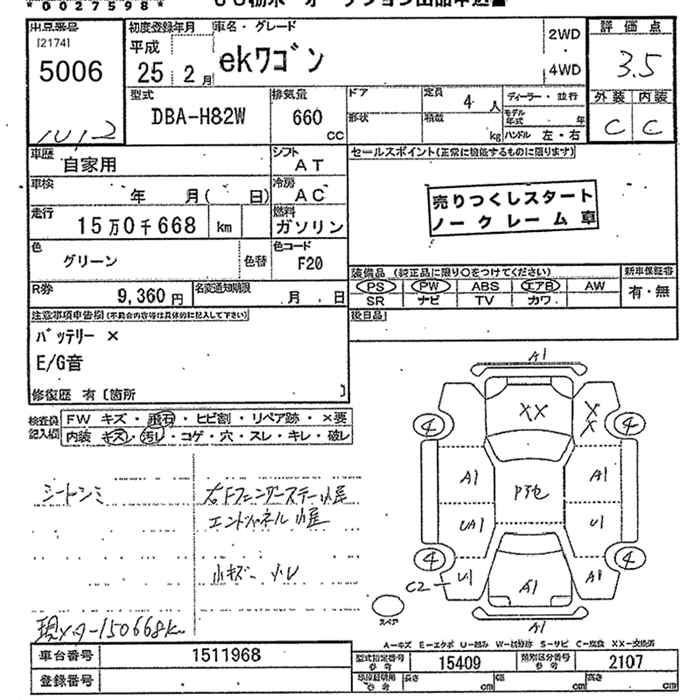 *00275981*
出品番号
[2174]
5006
初度登録年月
平成
25 2月
車名・グレード
ekワゴン
2WD
4WD
評価点
3.5
外装 内装
C C
型式
DBA-H82W
排気量
660
CC
ドア
形状
定員
4 人
積載
kg
ディーラー・並行
モデル年式 年
ハンドル 左・右
車歴
自家用
シフト
AT
セールスポイント(正常に機能するものに限ります)
車検
年 月( 日)
冷房
AC
売りつくしスタート
ノークレーム車
走行
15万0千668 km
燃料
ガソリン
色
グリーン
色替
色コード
F20
装備品 (純正品に限り○をつけてください)
新車保証書
PS PW ABS エアB AW
有・無
SR ナビ TV カワ
R券
9,360円
名変通知期限
月 日
後日品
注意事項申告欄(不具合内容等は具体的に記入して下さい)
バッテリー ×
E/G音
修復歴 有〔箇所 〕
検査員記入欄
FW キズ・飛石・ヒビ割・リペア跡・×要
内装 キズ・汚レ・コゲ・穴・スレ・キレ・破レ
シートシミ
右Fフェンダーステー
エンドパネル
小キズ
現メーター150668km
A1
XX
X
X
4
4
A1
A1
Pアセ
UA1
U1
4
4
C2
U1
A1
A1
A1
スペア
A-キズ E-エクボ U-凹み W-補修跡 S-サビ C-腐食 XX-交換済
車台番号
1511968
型式指定番号
参考
15409
類別区分番号
参考
2107
登録番号
車庫証明用
参考
長さ cm
幅 cm
高さ cm